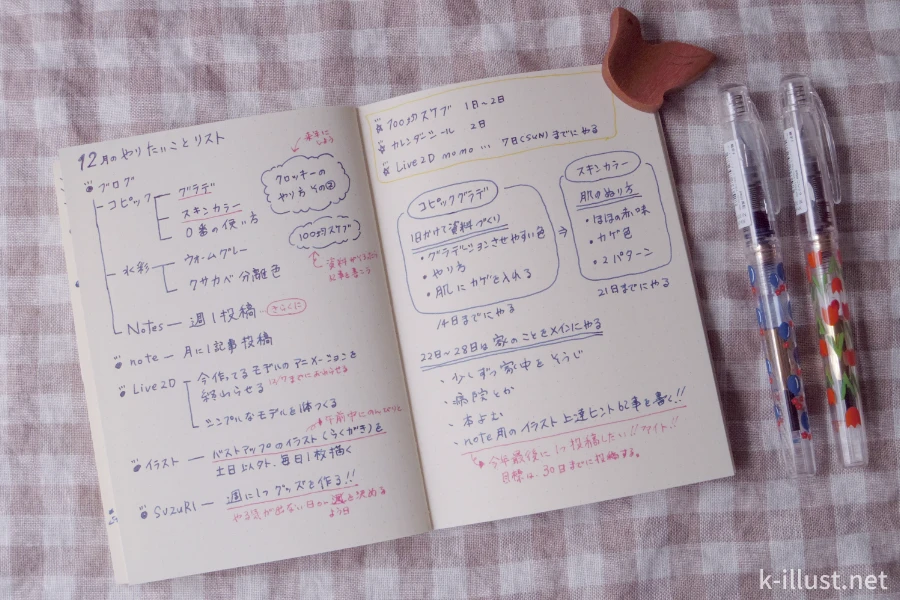 12月のやりたいことリスト
ブログ
コピック
グラデ
スキンカラー
0番の使い方
水彩
ウォームグレー
クサカベ分離色
Notes ー 週1投稿 ー さらくに
note ー 月に1記事投稿
Live2D
今作ってるモデルのアニメーションを
終わらせる
シンプルなモデルを1体つくる
午前中に
イラスト ー バストアップのイラスト(らくがき)を
土日以外、毎日1枚描く
SUZURI ー 週に1つグッズを作る!!
やる気が出ない日
を決める
クロッキーの
やり方 その②
100均スケブ
100均スケブ 1日〜2日
カレンダーシール 2日
Live2D momo … 7日(SUN)までにやる
コピックグラデ
1日かけて資料づくり
・グラデーションさせやすい色
・やり方
・肌にカゲを入れる
14日までにやる
⇒
スキンカラー
肌のぬり方
・ほほの赤味
・カゲ色
・2パターン
21日までにやる
22日〜28日は家のことをメインにやる
・少しずつ家中をそうじ
・病院とか
・本よむ
・note用のイラスト上達ヒント記事を書く!!
今年最後に1つ投稿したい!!ファイト!!
目標は、30日までに投稿する。
k-illust.net